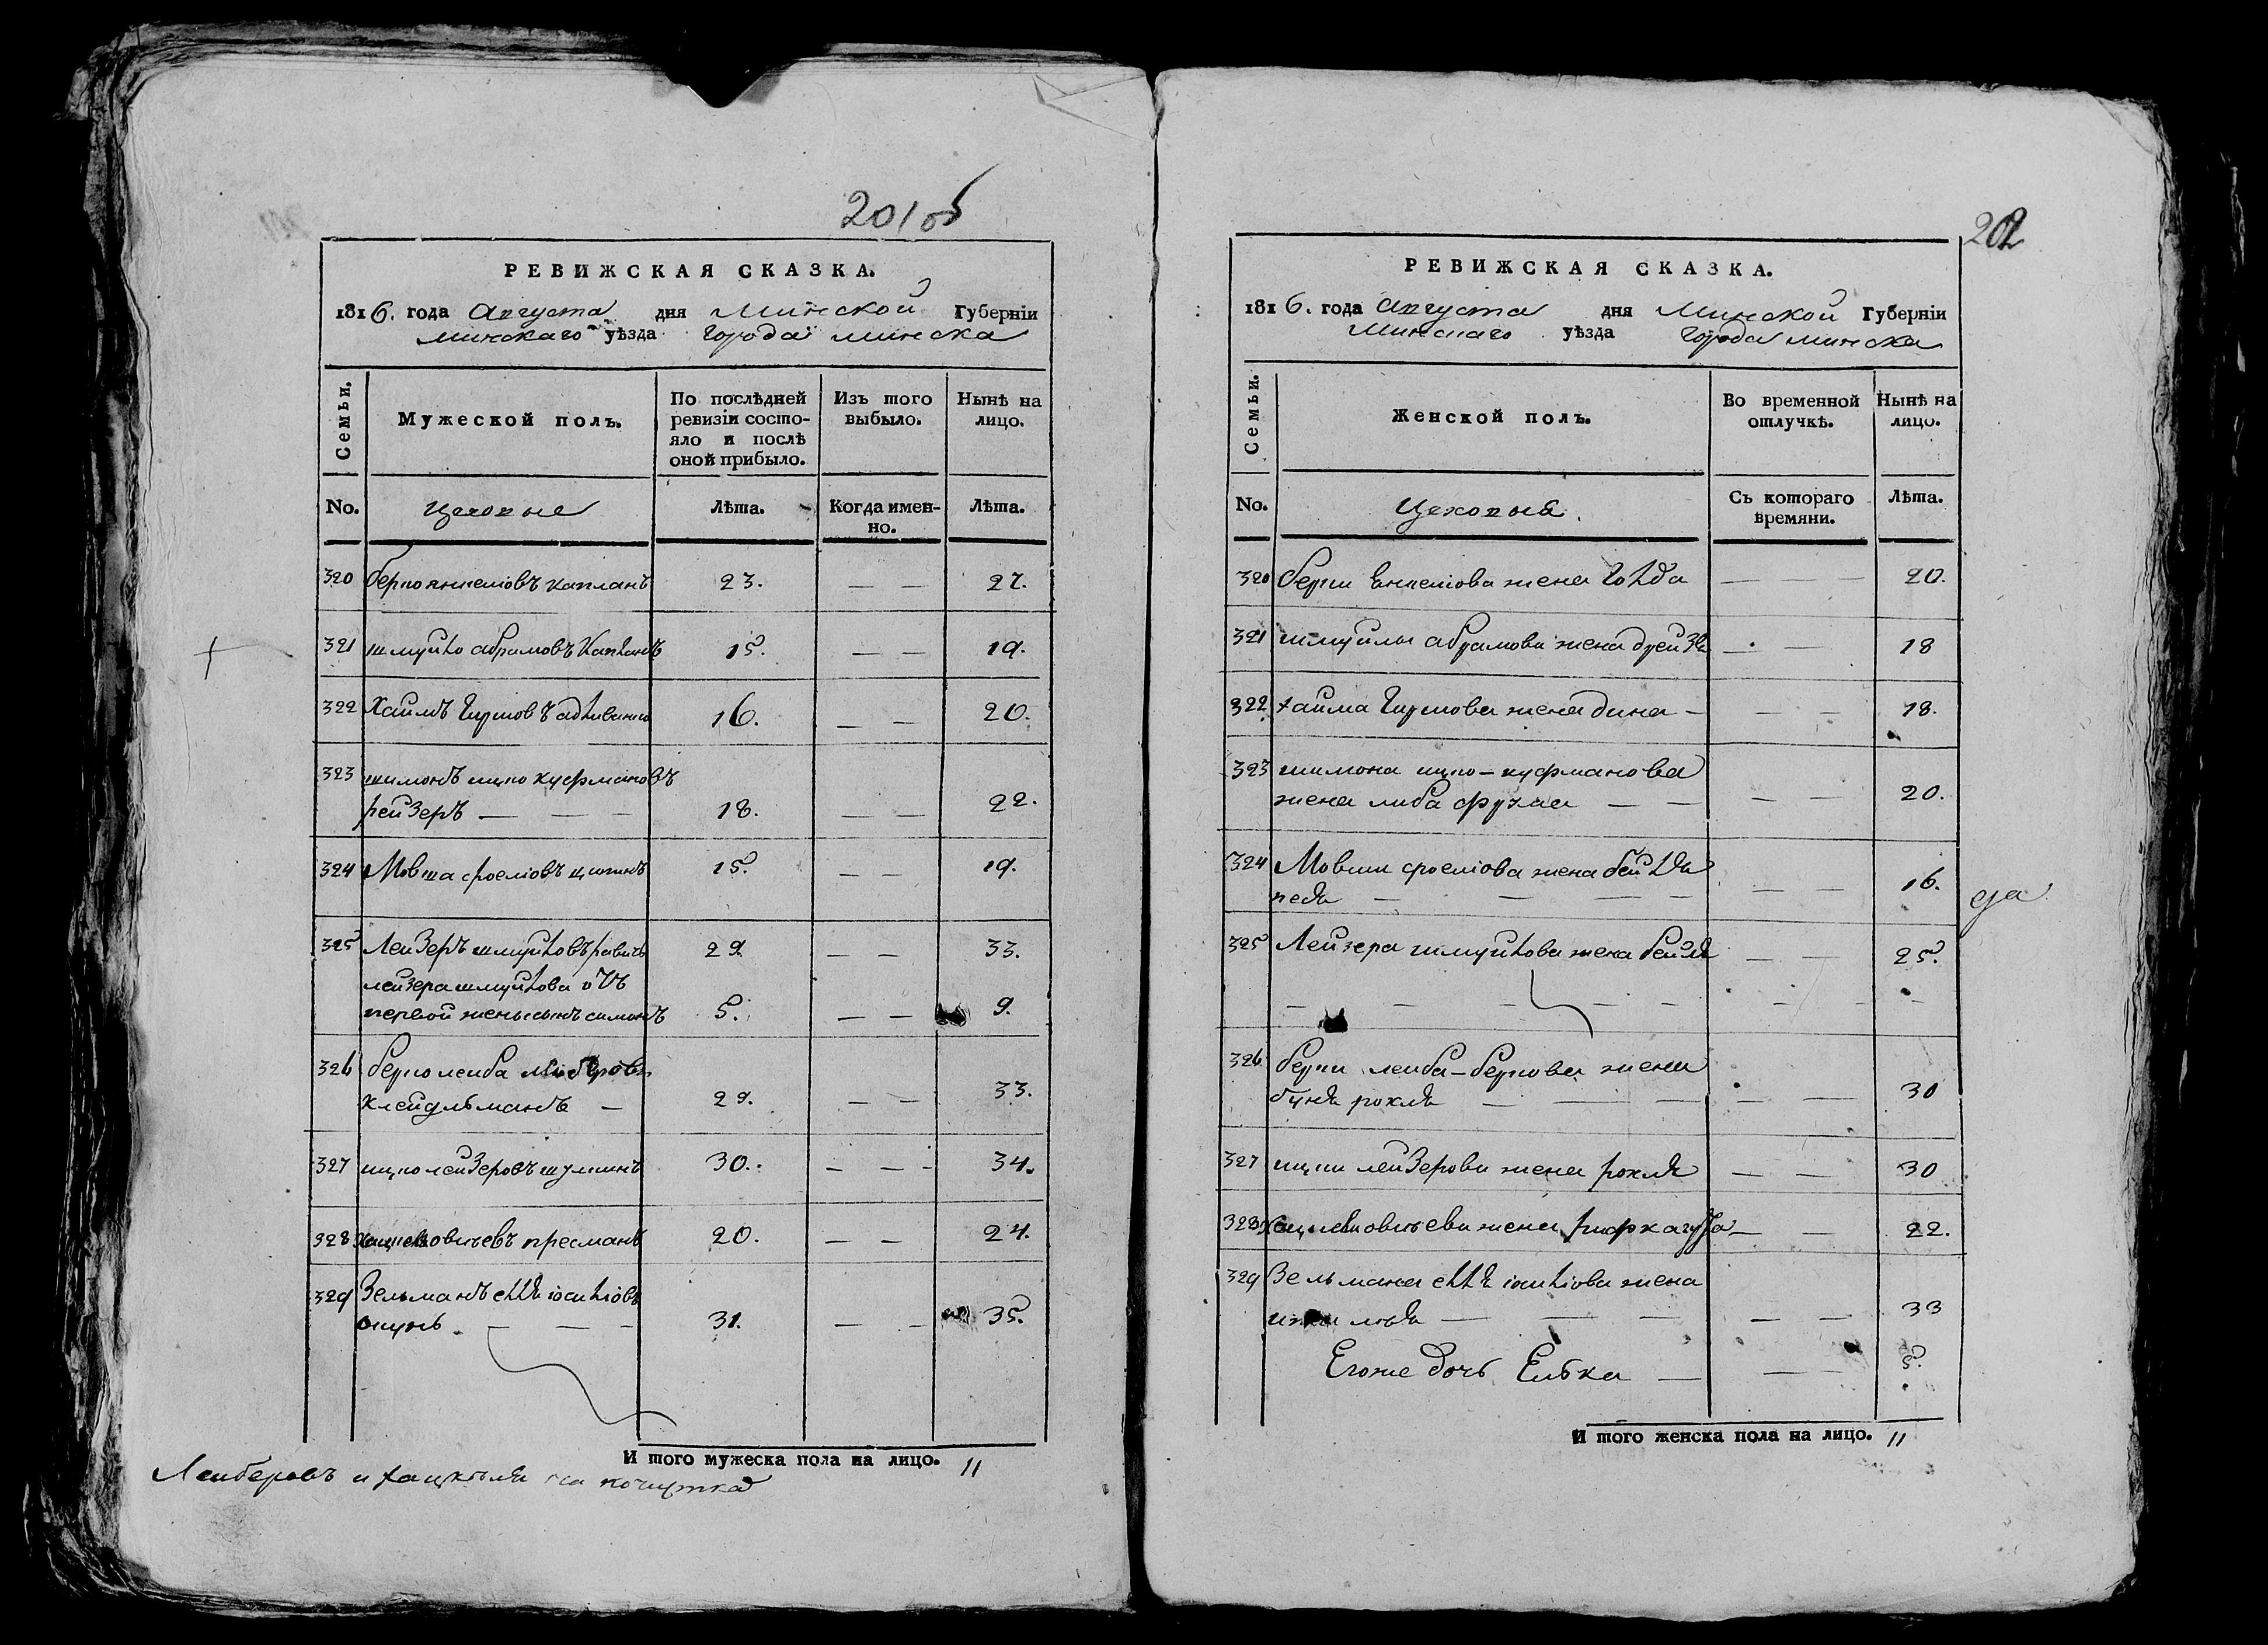 201 об
РЕВИЖСКАЯ СКАЗКА.
1816. года Августа дня Минской Губерніи
Минскаго уѣзда города минска
Семьи.
Мужеской полъ.
По послѣдней ревизіи состояло и послѣ оной прибыло.
Изъ того выбыло.
Нынѣ на лицо.
No. Цеховые Лѣта. Когда именно. Лѣта.
320 берко янкеліовъ капланъ 23. — — 27.
321 шмуйло абрамовъ Капланъ 15. — — 19.
322 Хаимъ Гиршовъ 16. — — 20.
323 шимонъ ицко кусрмановъ
рейзеръ — — — 18. — — 22.
324 Мовша сроеліовъ 15. — — 19.
325 Лейзеръ шмуйловъ 29 — — 33.
лейзера шмуйлова отъ
первой жены сынъ симонъ 5. — — 9.
326 берко лейба
Клейдльманъ — 29. — — 33.
327 ицко лейзеровъ шулкинъ 30. — — - 34.
328 пресманъ 20. — — 24.
329 Зельманъ еля іоселіовъ
окунь — — — 31. — — 35.
И того мужеска пола на лицо. 11
Лейберовъ и хацкеля по
202
РЕВИЖСКАЯ СКАЗКА.
1816. года Августа дня Минской Губерніи
Минскаго уѣзда города минска
Семьи.
Женской полъ.
Во временной отлучкѣ.
Нынѣ на лицо.
No. Цеховые Съ котораго времяни. Лѣта.
320 берки Енкеліова жена Голда — — — 20.
321 шмуйлы абрамова жена дрейзе — — 18
322 хаима Гиршова жена дина — — — 18.
323 шимона ицко-кусрманова
жена либа фрума — — — — 20.
324 Мовши сроеліова жена бейля
песя — — — — — — 16.
325 Лейзера шмуйлова жена бейля — — 25.
326 берки лейба-беркова жена
буня рохля — — — — — 30
327 ицки лейзерова жена рохля — — 30
328 жена — — 22.
329 Зельмана еля іоселіова жена
— — — — — 33
Егоже дочь Елька — — — 5.
И того женска пола на лицо. 11